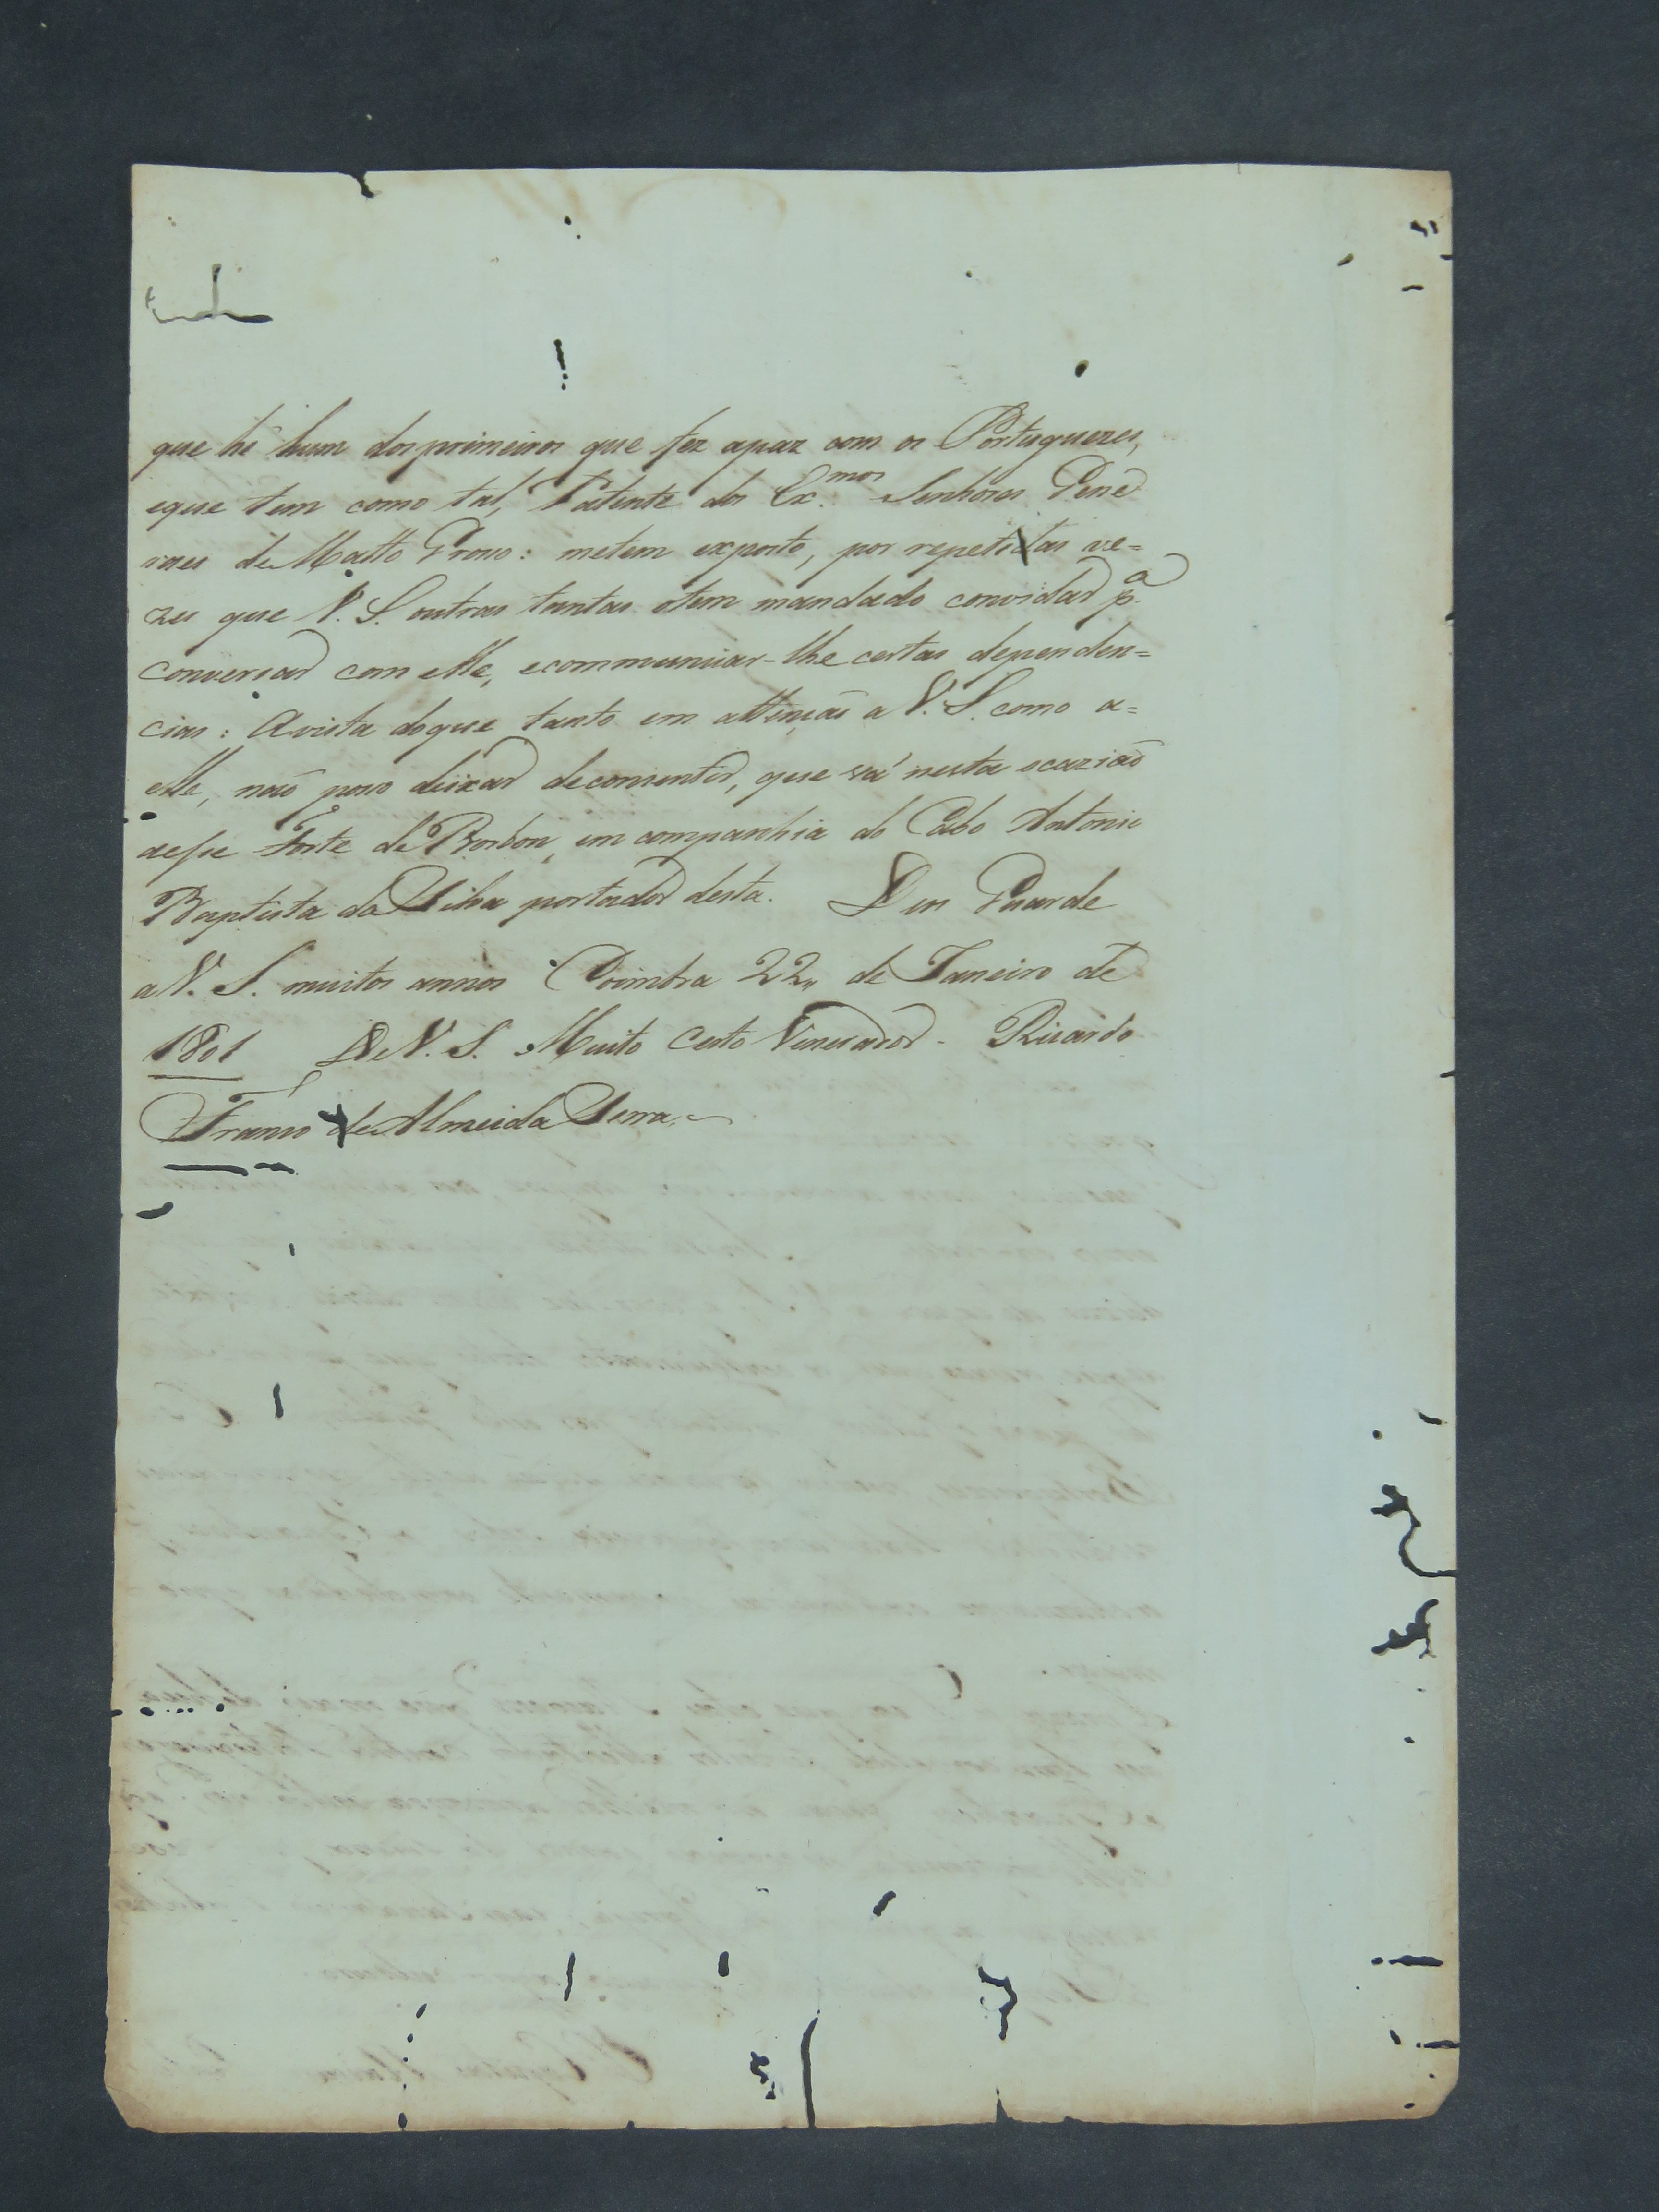 que hé hum dos primeiros que fez apaz com os Portuguezes,
eque tem como tal, Patente dos Ex.mos Senhores Gene
raes de Matto Grosso: metem exposto, por repetidas ve=
zes que V. S. outras tantas otem mandado convidar p.a
conversar com elle, ecommunicar-lhe certas dependen=
cias: Avista doque tanto em attenção a V. S. como a=
elle, não posso deixar deconsentir, que vá nesta ocazião
aesse Forte de Borbon, em companhia do Cabo Antonio
Baptista da Silva portador desta. Deos Guarde
a V. S. muitos annos Coimbra 22,, de Janeiro de
1801 De V. S. Muito Certo Venerador - Ricardo
Franco de Almeida Serra.